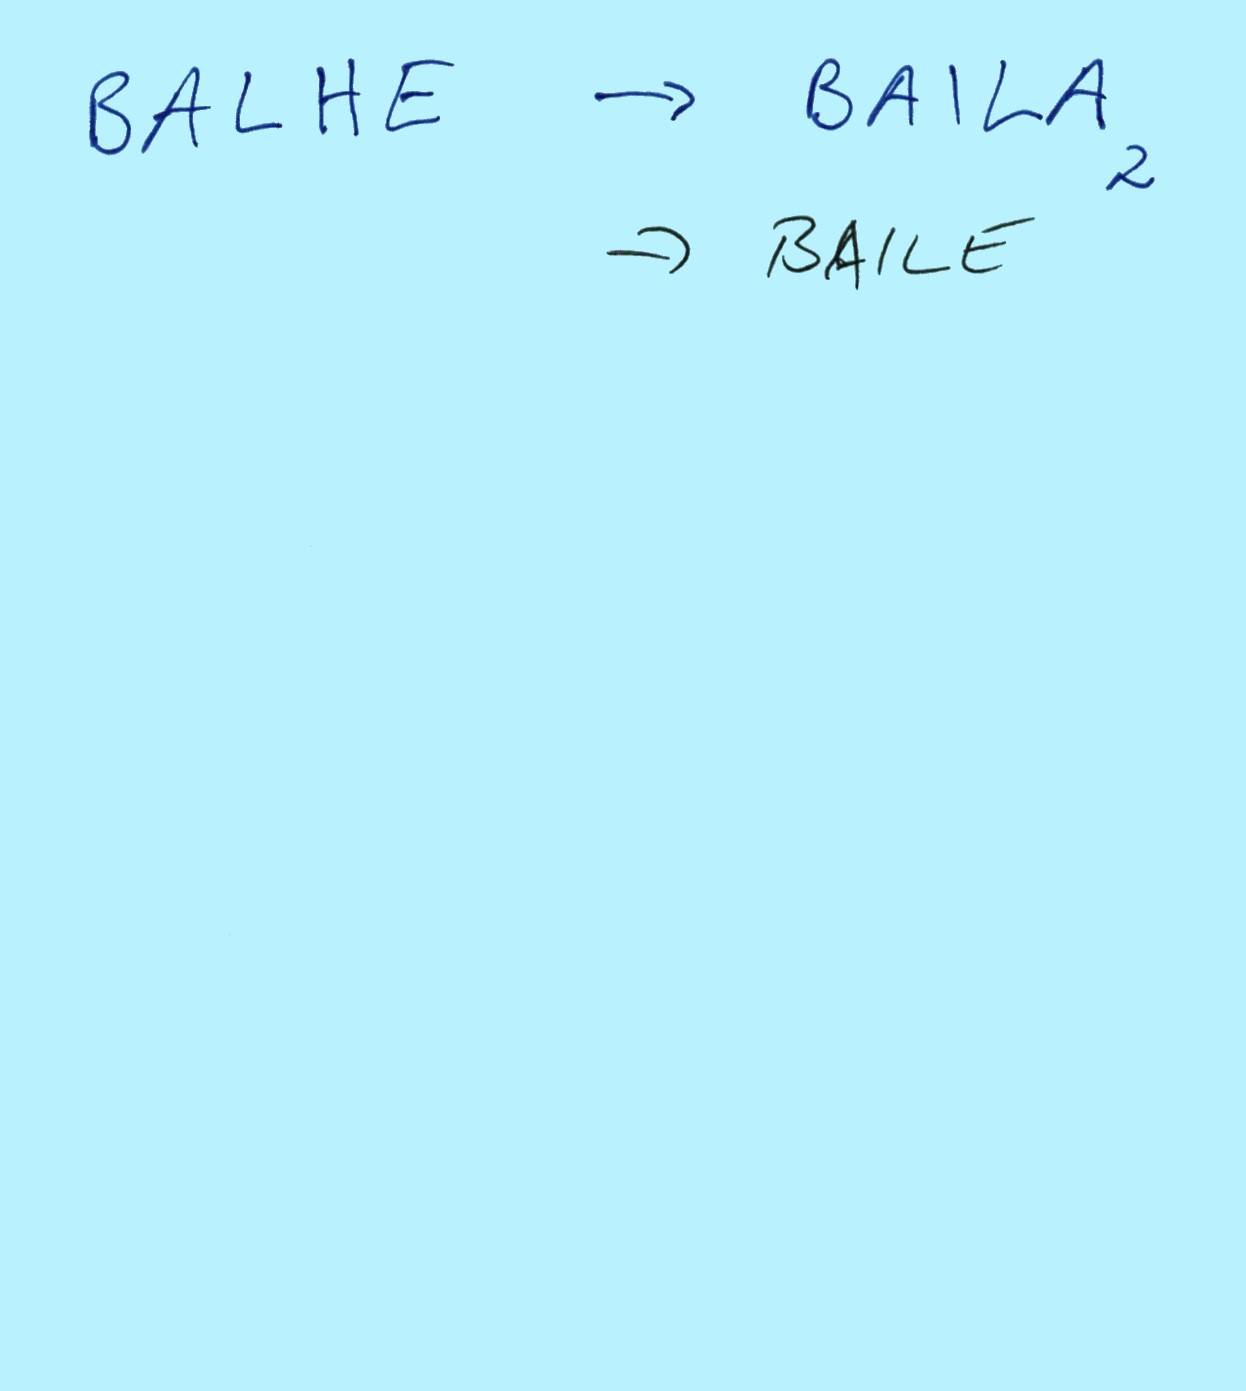 BALHE → BAILA₂
→ BAILE